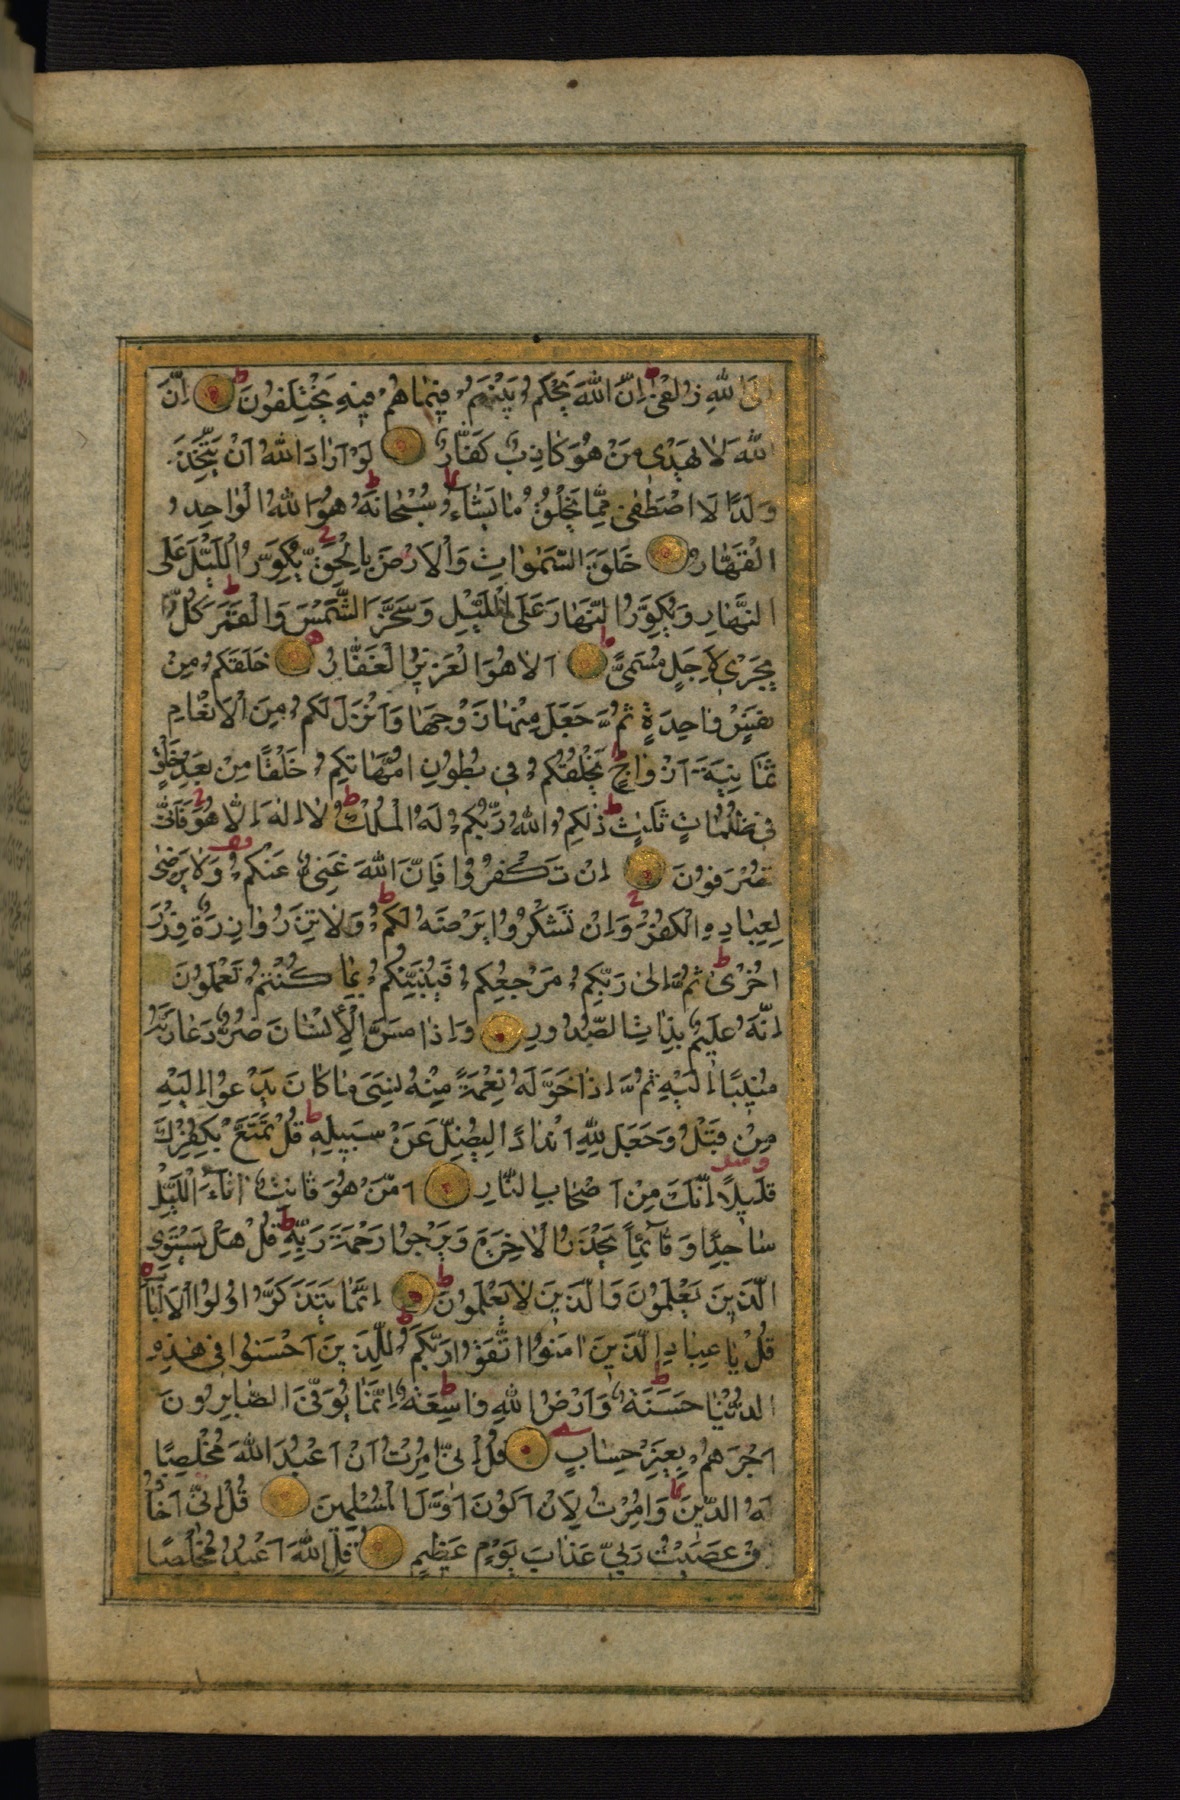 اِلَى اللّٰهِ زُلْفٰى اِنَّ اللّٰهَ يَحْكُمُ بَيْنَهُمْ فِيْمَا هُمْ فِيْهِ يَخْتَلِفُونَ اِنَّ
اللّٰهَ لَا يَهْدِى مَنْ هُوَ كَاذِبٌ كَفَّارٌ لَوْ اَرَادَ اللّٰهُ اَنْ يَتَّخِذَ
وَلَدًا لَا اصْطَفٰى مِمَّا يَخْلُقُ مَا يَشَآءُ سُبْحَانَهُ هُوَ اللّٰهُ الْوَاحِدُ
الْقَهَّارُ خَلَقَ السَّمٰوَاتِ وَالْاَرْضَ بِالْحَقِّ يُكَوِّرُ اللَّيْلَ عَلَى
النَّهَارِ وَيُكَوِّرُ النَّهَارَ عَلَى اللَّيْلِ وَسَخَّرَ الشَّمْسَ وَالْقَمَرَ كُلٌّ
يَجْرِى لِاَجَلٍ مُسَمًّى اَلَا هُوَ الْعَزِيْزُ الْغَفَّارُ خَلَقَكُمْ مِنْ
نَفْسٍ وَاحِدَةٍ ثُمَّ جَعَلَ مِنْهَا زَوْجَهَا وَاَنْزَلَ لَكُمْ مِنَ الْاَنْعَامِ
ثَمَانِيَةَ اَزْوَاجٍ يَخْلُقُكُمْ فِى بُطُونِ اُمَّهَاتِكُمْ خَلْقًا مِنْ بَعْدِ خَلْقٍ
فِى ظُلُمَاتٍ ثَلٰثٍ ذٰلِكُمُ اللّٰهُ رَبُّكُمْ لَهُ الْمُلْكُ لَا اِلٰهَ اِلَّا هُوَ فَاَنّٰى
تُصْرَفُونَ اِنْ تَكْفُرُوا فَاِنَّ اللّٰهَ غَنِىٌّ عَنْكُمْ وَلَا يَرْضٰى
لِعِبَادِهِ الْكُفْرَ وَاِنْ تَشْكُرُوا يَرْضَهُ لَكُمْ وَلَا تَزِرُ وَازِرَةٌ وِزْرَ
اُخْرٰى ثُمَّ اِلٰى رَبِّكُمْ مَرْجِعُكُمْ فَيُنَبِّئُكُمْ بِمَا كُنْتُمْ تَعْمَلُونَ
اِنَّهُ عَلِيْمٌ بِذَاتِ الصُّدُورِ وَاِذَا مَسَّ الْاِنْسَانَ ضُرٌّ دَعَا رَبَّهُ
مُنِيْبًا اِلَيْهِ ثُمَّ اِذَا خَوَّلَهُ نِعْمَةً مِنْهُ نَسِىَ مَا كَانَ يَدْعُوا اِلَيْهِ
مِنْ قَبْلُ وَجَعَلَ لِلّٰهِ اَنْدَادًا لِيُضِلَّ عَنْ سَبِيْلِهِ قُلْ تَمَتَّعْ بِكُفْرِكَ
قَلِيْلًا اِنَّكَ مِنْ اَصْحَابِ النَّارِ اَمَّنْ هُوَ قَانِتٌ اٰنَآءَ اللَّيْلِ
سَاجِدًا وَقَآئِمًا يَحْذَرُ الْاٰخِرَةَ وَيَرْجُوا رَحْمَةَ رَبِّهِ قُلْ هَلْ يَسْتَوِى
الَّذِيْنَ يَعْلَمُونَ وَالَّذِيْنَ لَا يَعْلَمُونَ اِنَّمَا يَتَذَكَّرُ اُولُوا الْاَلْبَابِ
قُلْ يَا عِبَادِ الَّذِيْنَ اٰمَنُوا اتَّقُوا رَبَّكُمْ لِلَّذِيْنَ اَحْسَنُوا فِى هٰذِهِ
الدُّنْيَا حَسَنَةٌ وَاَرْضُ اللّٰهِ وَاسِعَةٌ اِنَّمَا يُوَفَّى الصَّابِرُونَ
اَجْرَهُمْ بِغَيْرِ حِسَابٍ قُلْ اِنِّى اُمِرْتُ اَنْ اَعْبُدَ اللّٰهَ مُخْلِصًا
لَهُ الدِّيْنَ وَاُمِرْتُ لِاَنْ اَكُونَ اَوَّلَ الْمُسْلِمِيْنَ قُلْ اِنِّى اَخَافُ
اِنْ عَصَيْتُ رَبِّى عَذَابَ يَوْمٍ عَظِيْمٍ قُلِ اللّٰهَ اَعْبُدُ مُخْلِصًا